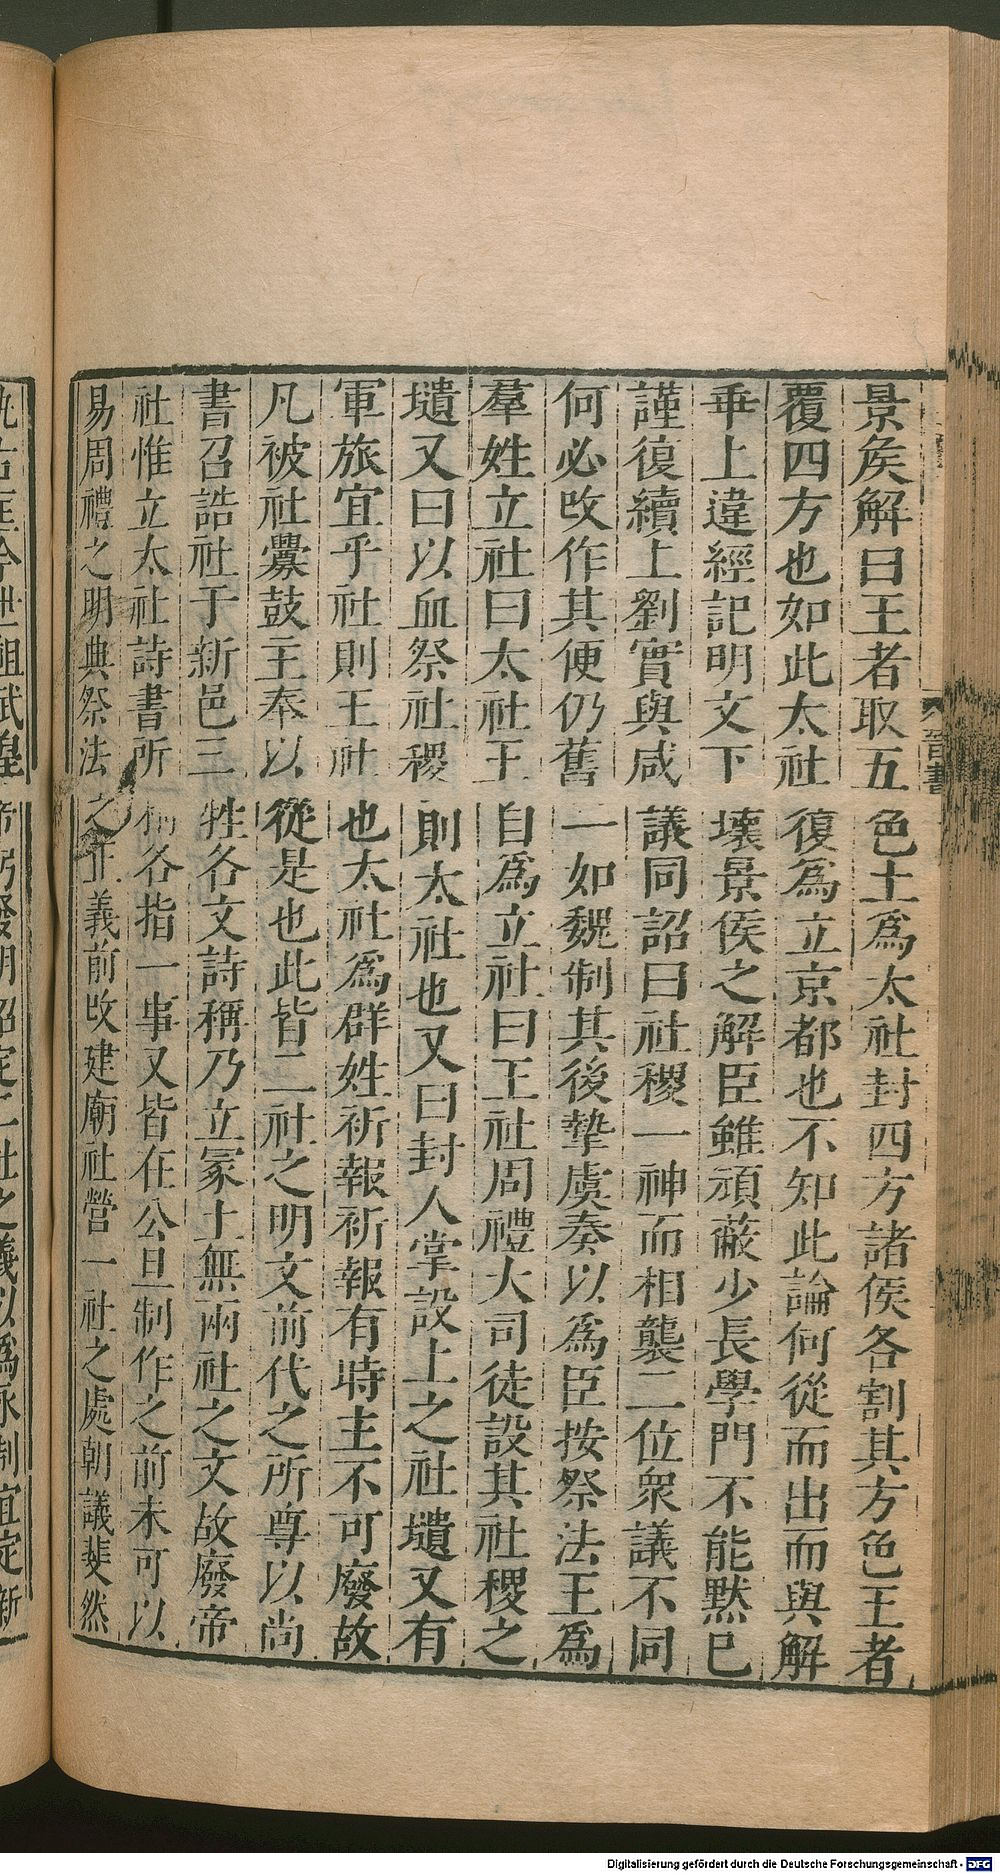 景矦解曰王者取五色土爲太社封四方諸侯各割其方色王者
覆四方也如此太社復爲立京都也不知此論何從而出而與解
乖上違經記明文下壞景侯之解臣雖頑蔽少長學門不能默已
謹復續上劉寔與咸議同詔曰社稷一神而相襲二位衆議不同
何必改作其便仍舊一如魏制其後摯虞奏以爲臣按祭法王爲
羣姓立社曰太社王自爲立社曰王社周禮大司徒設其社稷之
壝又曰以血祭社稷則太社也又曰封人掌設王之社壝又有
軍旅宜乎社則王社也太社爲群姓祈報祈報有時主不可廢故
凡被社釁鼓主奉以從是也此皆二社之明文前代之所尊以尚
書召誥社于新邑三牲各文詩稱乃立冢土無兩社之文故廢帝
社惟立太社詩書所稱各指一事又皆在公旦制作之前未可以
易周禮之明典祭法之正義前改建廟社營一社之處朝議斐然
晉書
Digitalisierung gefördert durch die Deutsche Forschungsgemeinschaft - DFG